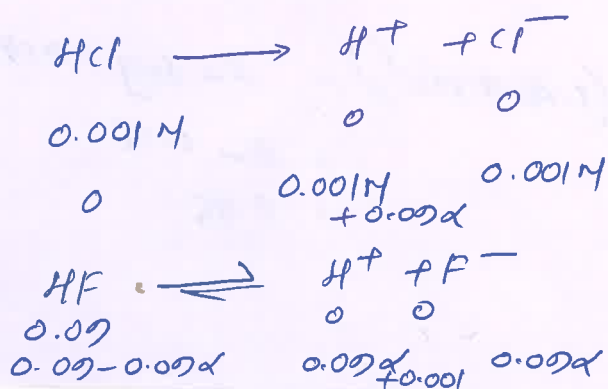 HCl ⟶ H⁺ + Cl⁻
0.001 M 0 0
0 0.001M 0.001M
+ 0.09α
HF ⇌ H⁺ + F⁻
0.09 0 0
0.09-0.09α 0.09α 0.09α
+0.001